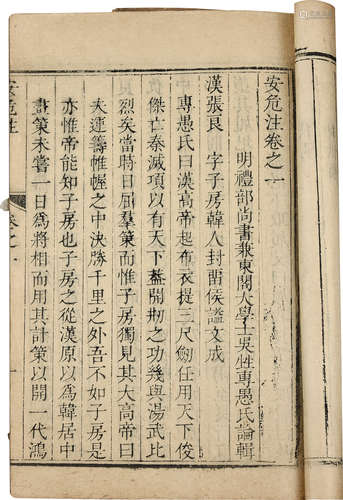 安危注卷之一
明禮部尚書兼東閣大學士吳甡專愚氏論輯
漢張良 字子房韓人封留侯諡文成
專愚氏曰漢高帝起布衣提三尺劒任用天下俊
傑亡秦滅項以有天下蓋開刱之功幾與湯武比
烈矣當時日屈羣策而惟子房獨見其大高帝曰
夫運籌帷幄之中決勝千里之外吾不如子房是
亦惟帝能知子房也子房之從漢原以為韓居中
畫策未嘗一日為將相而用其計策以開一代鴻
安危注
卷之一